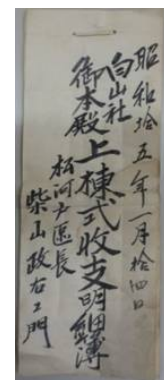 昭和拾五年一月拾四日
白山社
御本殿上棟式收支明細簿
松河戸區長
柴山政右ェ門